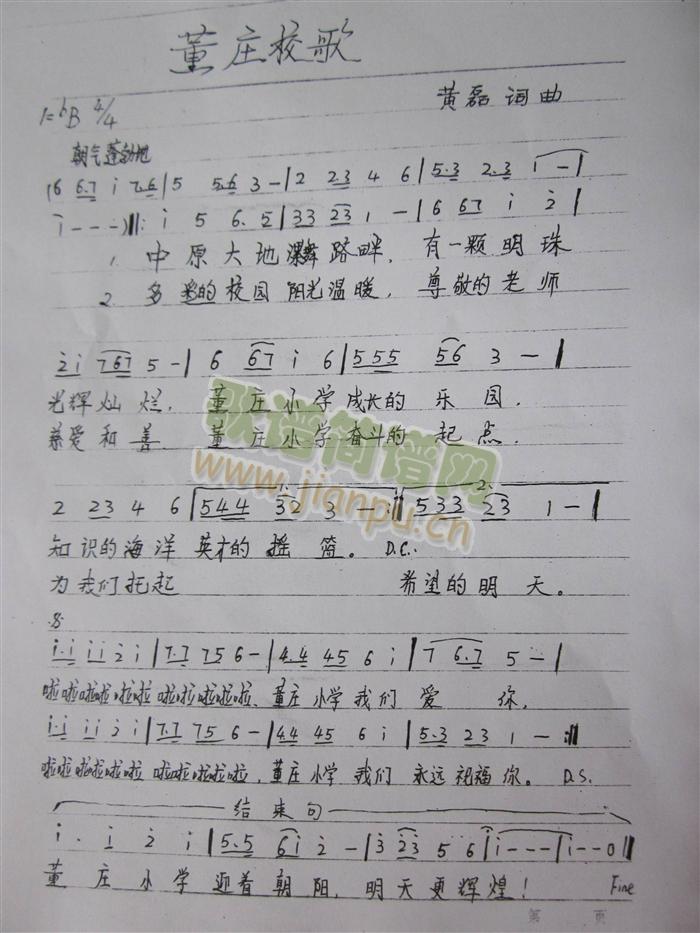 董庄校歌
1=bB 4/4
黄磊 词曲
朝气蓬勃地
(6 6.7 i 7.6 | 5 5.6 3 - | 2 2.3 4 6 | 5.3 2.3 i - |
i - - -) ||: i 5 6.5 | 33 23 1 - | 6 67 i 2 |
1. 中原大地 路畔, 有一颗明珠
2. 多彩的校园阳光温暖, 尊敬的老师
2i 767 5 - | 6 67 i 6 | 555 56 3 - |
光辉灿烂, 董庄小学成长的乐园,
慈爱和善, 董庄小学奋斗的起点,
歌谱简谱网
www.jianpu.cn
1. 2.
2 23 4 6 | 544 32 3 - :|| 533 23 1 - |
知识的海洋 英才的摇篮。 D.C.
为我们托起 希望的明天。
i.i ii 2 i | 7.7 75 6 - | 4.4 45 6 i | 7 6.7 5 - |
啦啦啦啦啦啦啦啦啦啦, 董庄小学我们爱你,
i.i ii 2 i | 7.7 75 6 - | 4.4 45 6 i | 5.3 23 1 - :||
啦啦啦啦啦啦啦啦啦啦, 董庄小学我们永远祝福你。 D.S.
结束句
i. i 2 i | 5.5 6i 2 - | 3 23 5 6 | i - - - | i - - 0 ||
董庄小学迎着朝阳, 明天更辉煌! Fine
第 页